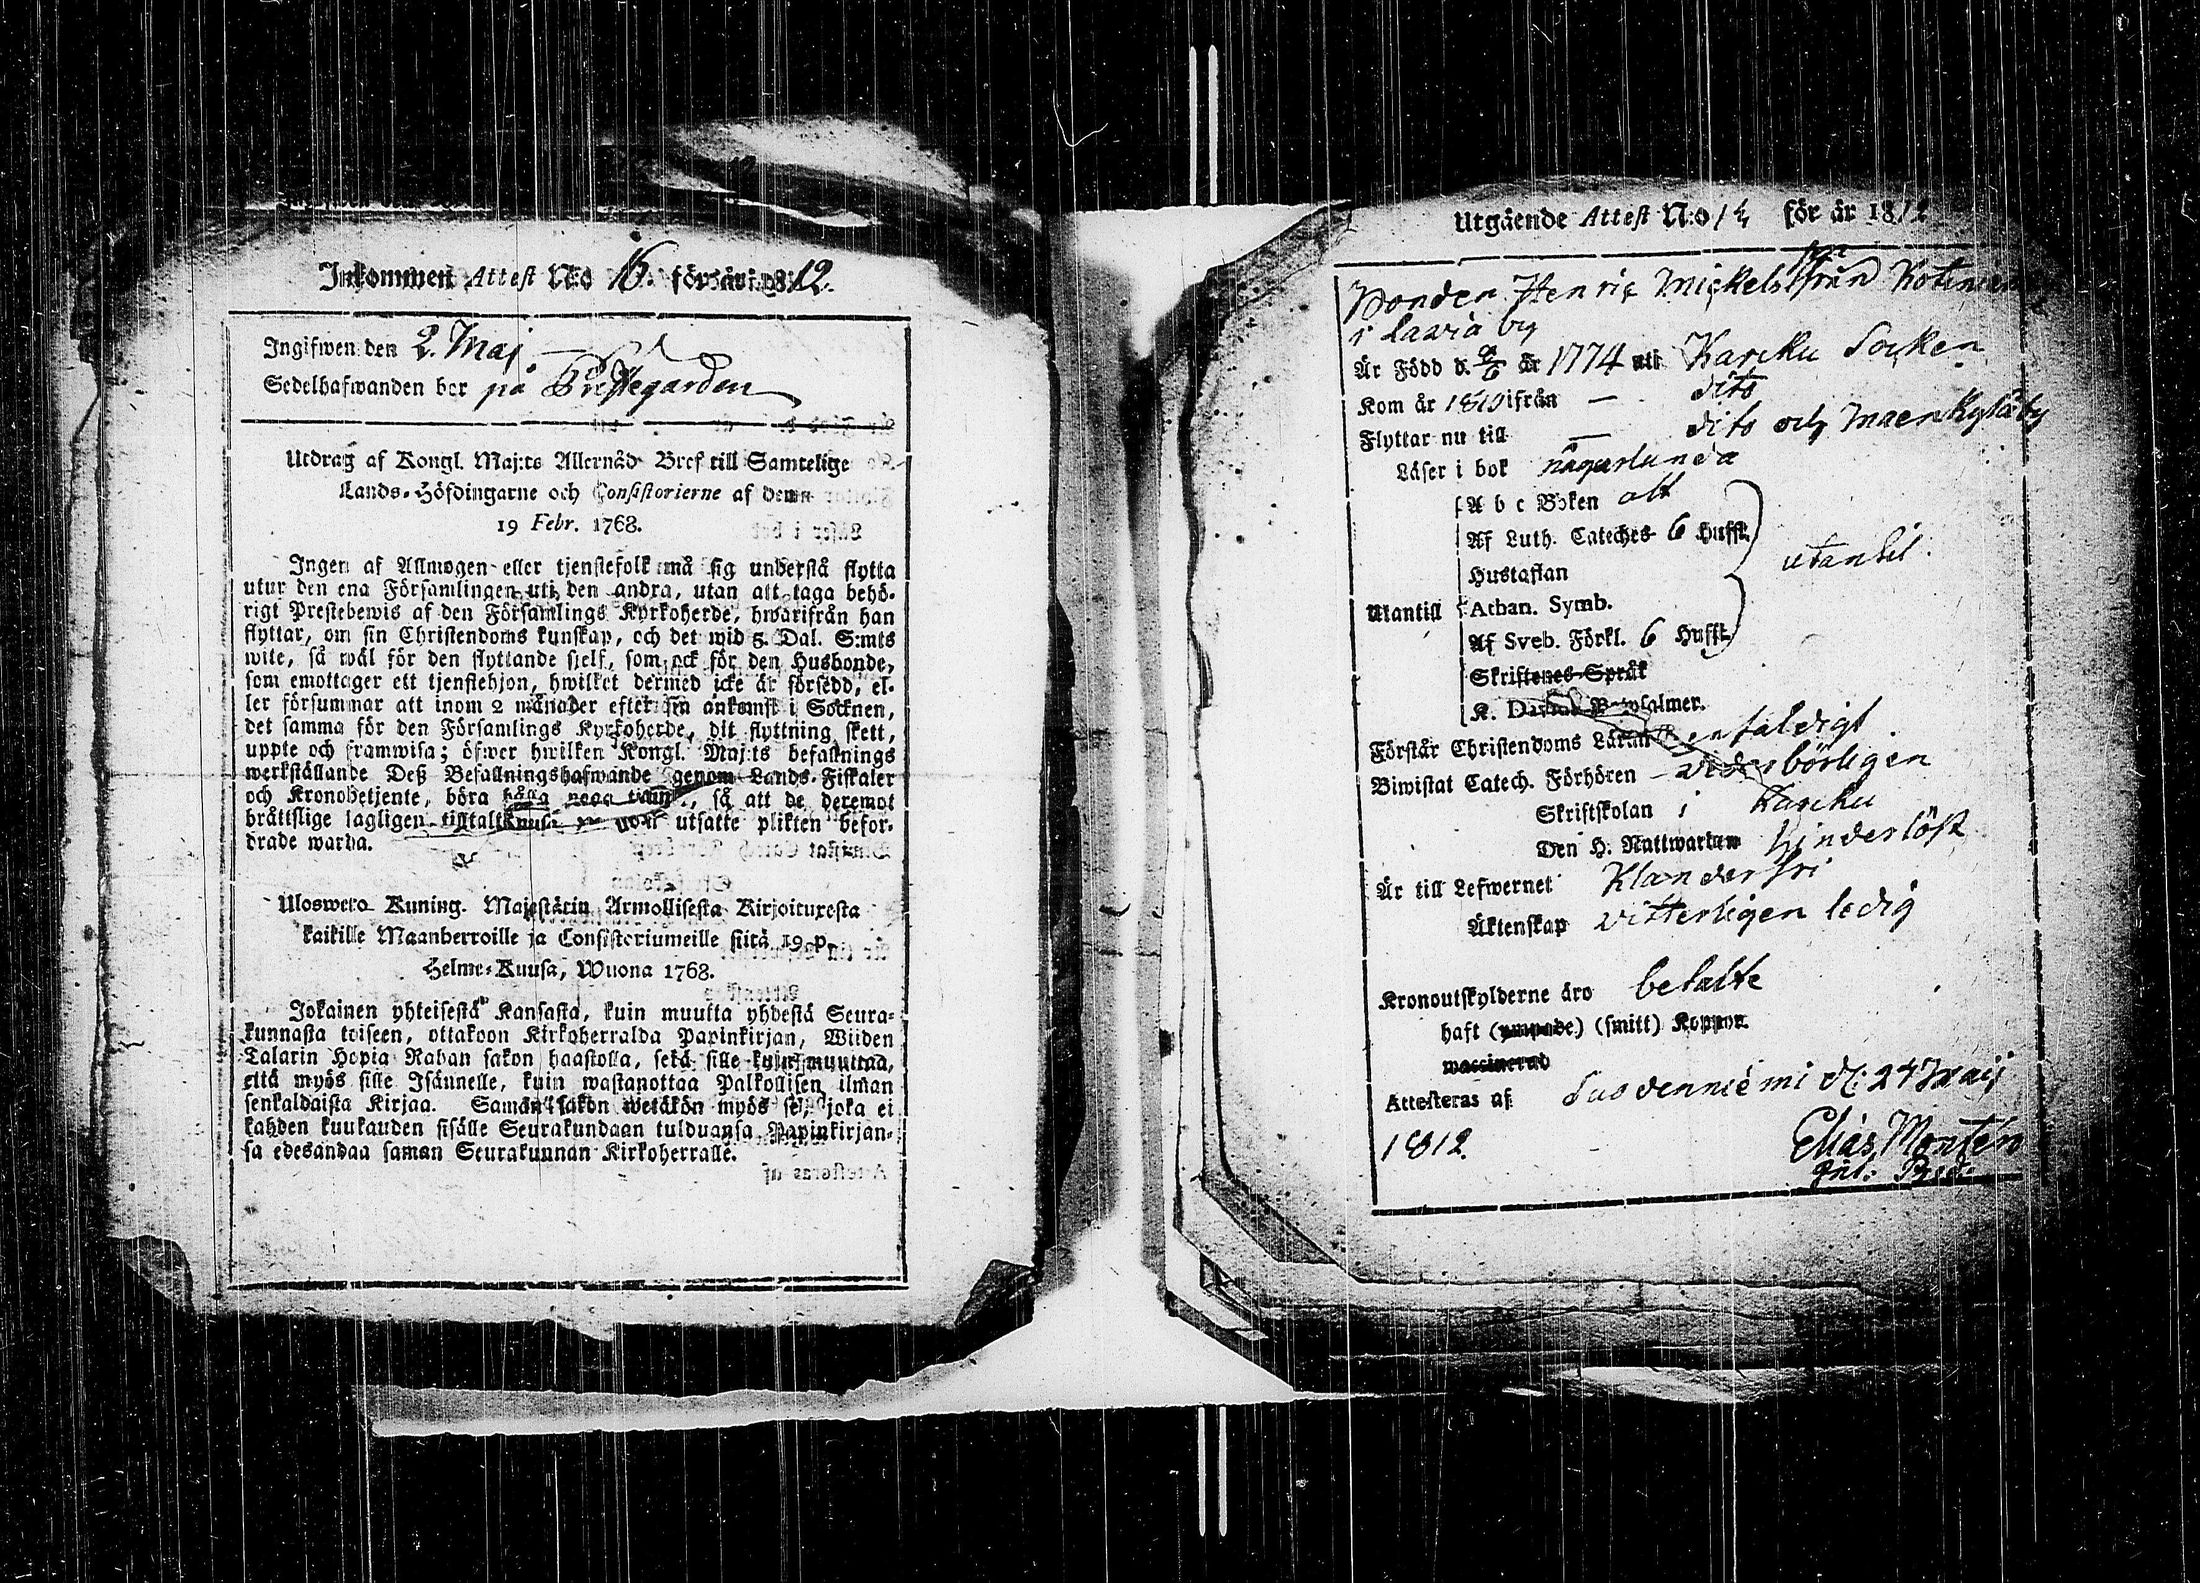 Inkommen Attest N:o 16. för år 1812.
Ingifwen den 2. Maj
Sedelhafwanden bor på Prestegården
Utdrag af Kongl. Maj:ts Allernåd. Bref till Samtelige
Lands-Höfdingarne och Consistorierne af denn
19 Febr. 1768.
Ingen af Allmogen eller tjenstefolk må sig understå flytta
utur den ena Församlingen uti den andra, utan att taga behö-
rigt Prestebewis af den Församlings Kyrkoherde, hwarifrån han
flyttar, om sin Christendoms kunskap, och det wid 5 Dal. S:mts
wite, så wäl för den flyttande sjelf, som ock för den Husbonde,
som emottager ett tjenstehjon, hwilket dermed icke är försedd, el-
ler försummar att inom 2 månader efter sin ankomst i Socknen,
det samma för den Församlings Kyrkoherde, dit flyttning skett,
uppte och framwisa; öfwer hwilken Kongl. Maj:ts befallnings
werkställande Deß Befallningshafwande genom Lands-Fiskaler
och Kronobetjente, böra hålla noga, så att de deremot
bråttslige lagligen utsatte plikten befor-
drade warda.
Uloswero Kuning. Majestätin Armollisesta Kirjoituxesta
kaikille Maanherroille ja Consistoriumeille siitä 19 p.
Helme-Kuusa, Wuona 1768.
Jokainen yhteisestä Kansasta, kuin muutta yhdestä Seura-
kunnasta toiseen, ottakoon Kirkoherralda Papinkirjan, Wiiden
Talarin Hopia Rahan sakon haastolla, sekä sille kuin muuttaa,
että myös sille Isännelle, kuin wastanottaa Palkollisen ilman
senkaldaista Kirjaa. Samän sakon wetäkön myös se, joka ei
kahden kuukauden sisälle Seurakundaan tulduansa Papinkirjan-
sa edesandaa saman Seurakunnan Kirkoherralle.
Utgående Attest N:o för år 1812
Bonden Henric Mickelsson från
i Lavia by
Är Född d. år 1774 uti Karcku Socken
Kom år 1810 ifrån — dito
Flyttar nu till — dito och by
Läser i bok någorlunda
A b c Boken alt
Af Luth. Cateches 6 Hufst.
Hustaflan utantil.
Utantill Athan. Symb.
Af Sveb. Förkl. 6 Hufst.
Skriftenes Språk
K. Davids Botpsalmer.
Förstår Christendoms Läran enfaldigt
Biwistat Catech. Förhören wederbörligen
Skriftskolan i Karcku
Den H. Nattwarden hinderlöst
Är till Lefwernet Klanderfri
Äktenskap vitterligen ledig
Kronoutskylderne äro betalte
haft (ympade) (smitt) Koppor.
waccinerad
Attesteras af Suodenniemi d. 24 Maij
1812. Elias Montén